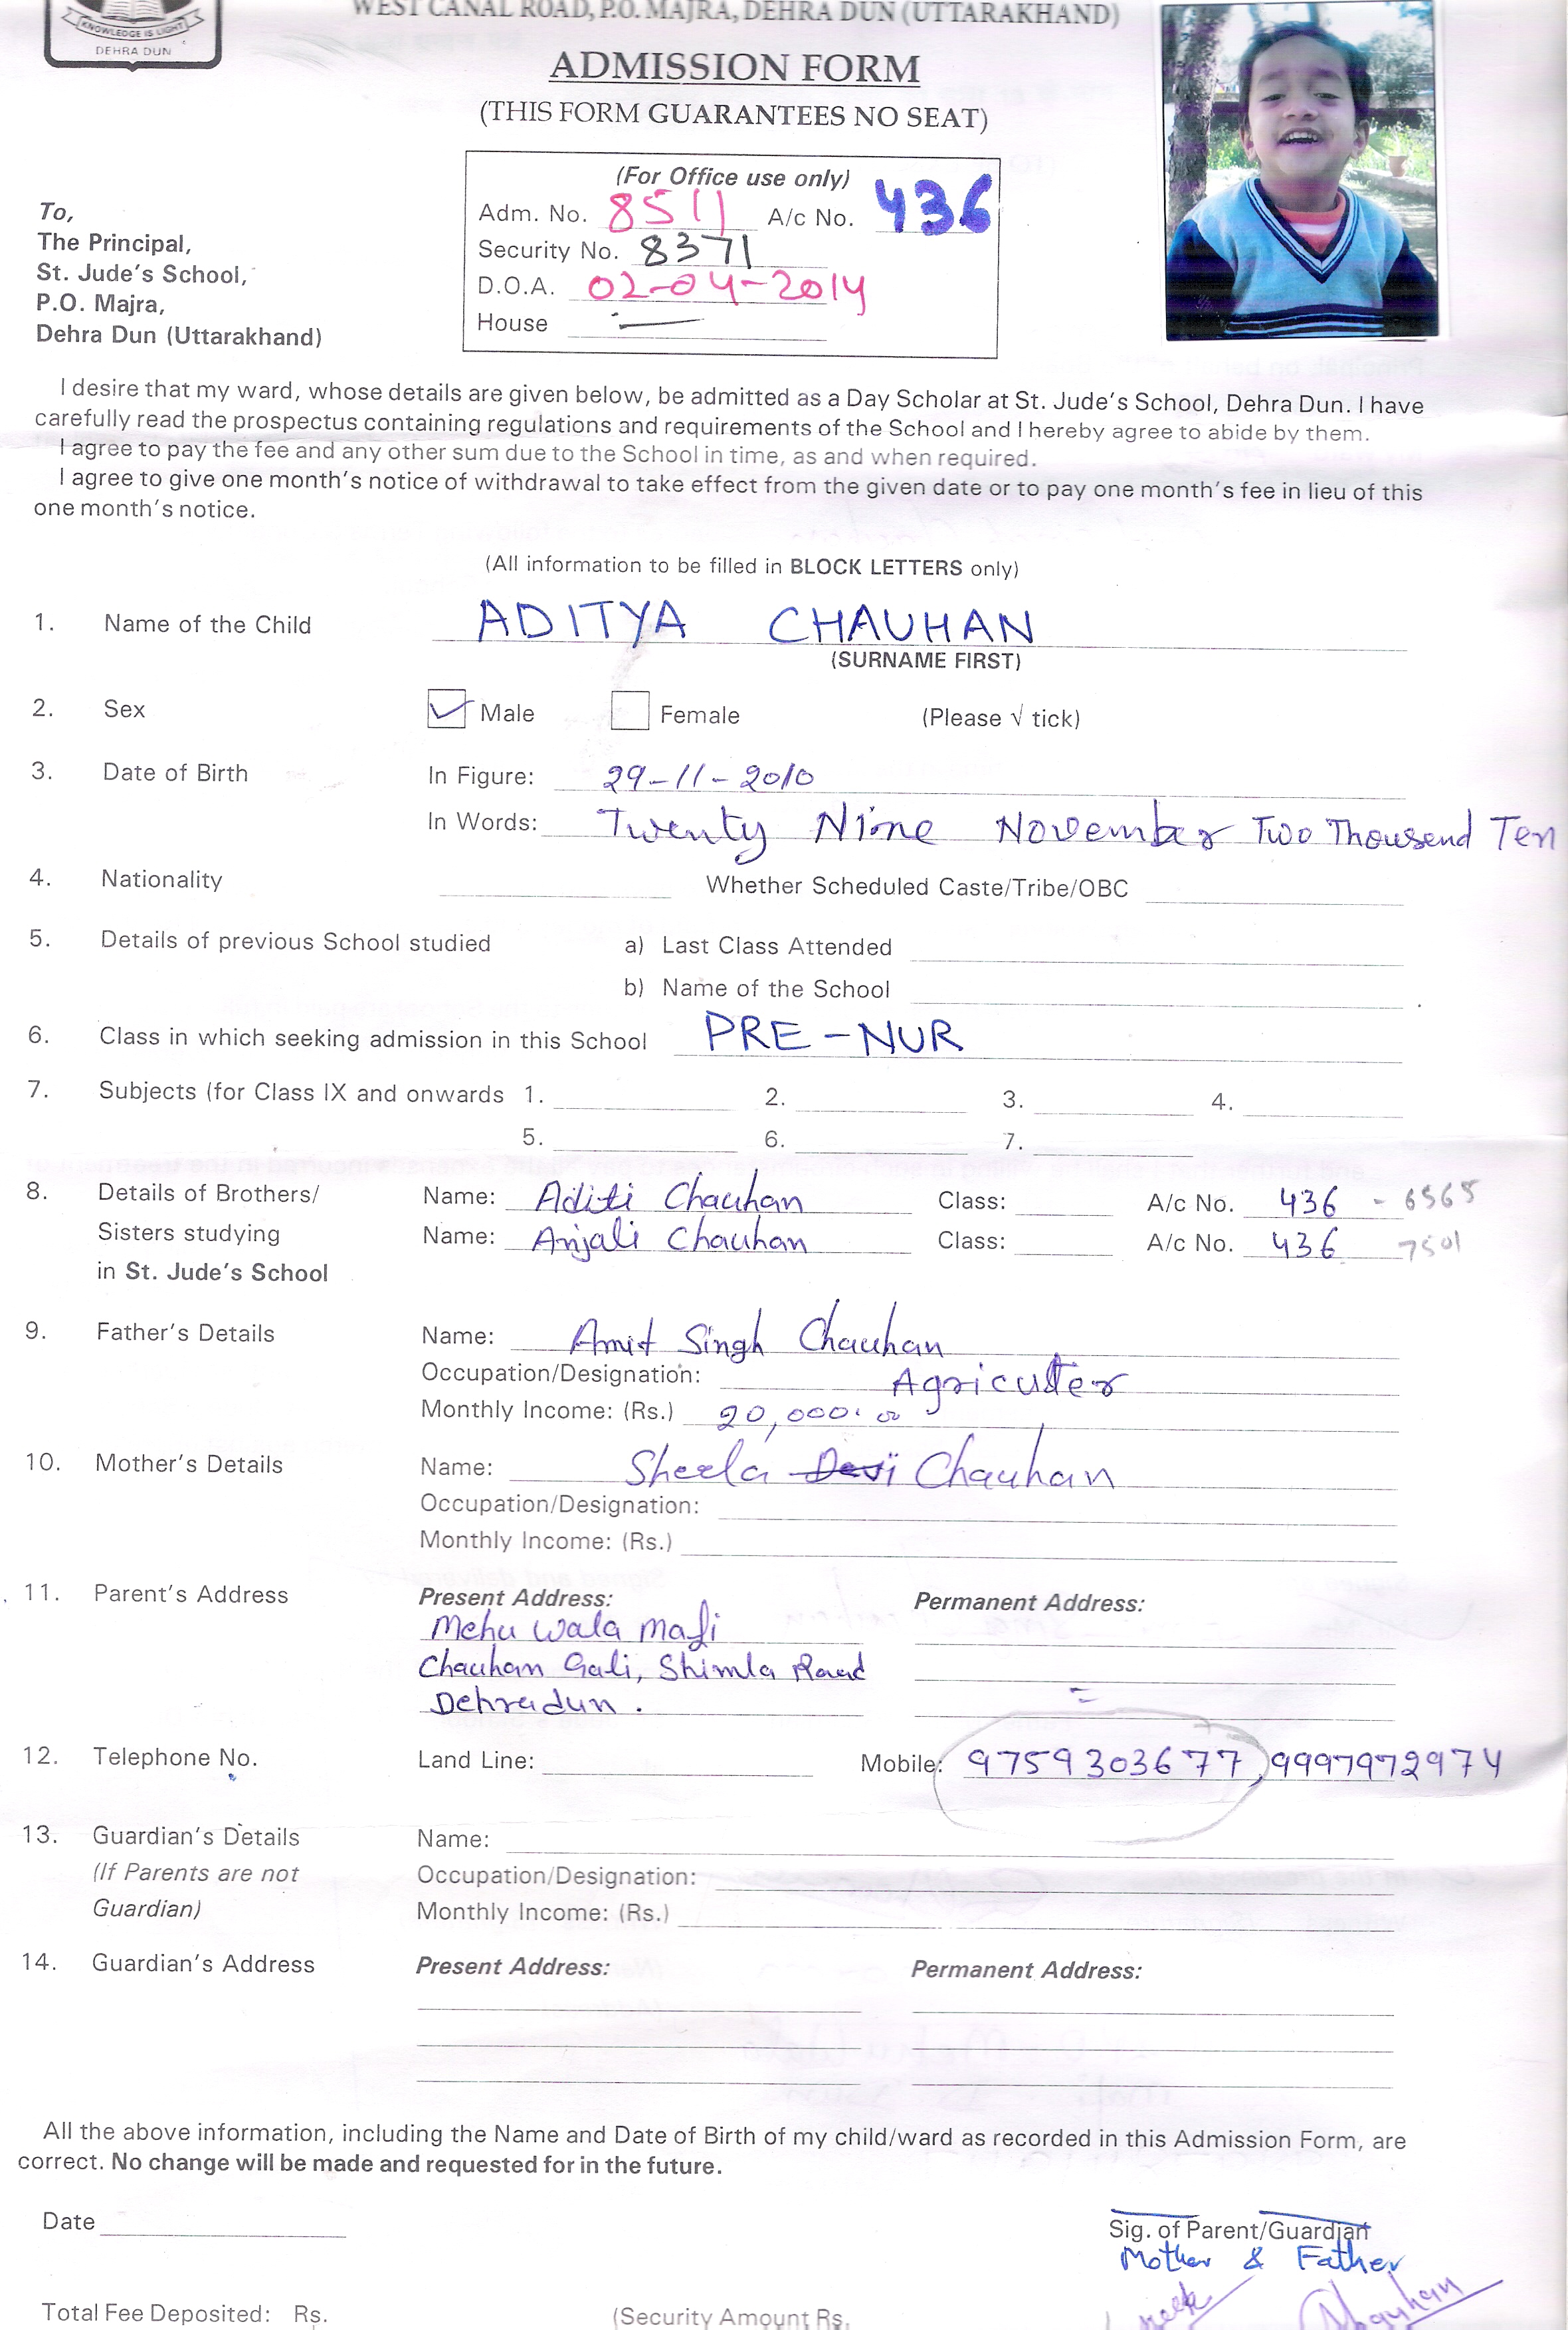 KNOWLEDGE IS LIGHT
DEHRA DUN
WEST CANAL ROAD, P.O. MAJRA, DEHRA DUN (UTTARAKHAND)
ADMISSION FORM
(THIS FORM GUARANTEES NO SEAT)
(For Office use only)
Adm. No. 8511 A/c No. 436
Security No. 8371
D.O.A. 02-04-2014
House —
To,
The Principal,
St. Jude's School,
P.O. Majra,
Dehra Dun (Uttarakhand)
I desire that my ward, whose details are given below, be admitted as a Day Scholar at St. Jude's School, Dehra Dun. I have
carefully read the prospectus containing regulations and requirements of the School and I hereby agree to abide by them.
I agree to pay the fee and any other sum due to the School in time, as and when required.
I agree to give one month's notice of withdrawal to take effect from the given date or to pay one month's fee in lieu of this
one month's notice.
(All information to be filled in BLOCK LETTERS only)
1. Name of the Child ADITYA CHAUHAN
(SURNAME FIRST)
2. Sex ✓ Male Female (Please √ tick)
3. Date of Birth In Figure: 29-11-2010
In Words: Twenty Nine November Two Thousend Ten
4. Nationality Whether Scheduled Caste/Tribe/OBC
5. Details of previous School studied a) Last Class Attended
b) Name of the School
6. Class in which seeking admission in this School PRE-NUR
7. Subjects (for Class IX and onwards 1. 2. 3. 4.
5. 6. 7.
8. Details of Brothers/ Name: Aditi Chauhan Class: A/c No. 436 - 6565
Sisters studying Name: Anjali Chauhan Class: A/c No. 436 7501
in St. Jude's School
9. Father's Details Name: Amit Singh Chauhan
Occupation/Designation: Agriculter
Monthly Income: (Rs.) 20,000.00
10. Mother's Details Name: Sheela Devi Chauhan
Occupation/Designation:
Monthly Income: (Rs.)
11. Parent's Address Present Address: Permanent Address:
Mehu wala mafi
Chauhan Gali, Shimla Road
Dehradun.
12. Telephone No. Land Line: Mobile: 9759303677, 9997972974
13. Guardian's Details Name:
(If Parents are not Occupation/Designation:
Guardian) Monthly Income: (Rs.)
14. Guardian's Address Present Address: Permanent Address:
All the above information, including the Name and Date of Birth of my child/ward as recorded in this Admission Form, are
correct. No change will be made and requested for in the future.
Date
Sig. of Parent/Guardian
Mother & Father
Chauhan
Total Fee Deposited: Rs. (Security Amount Rs.